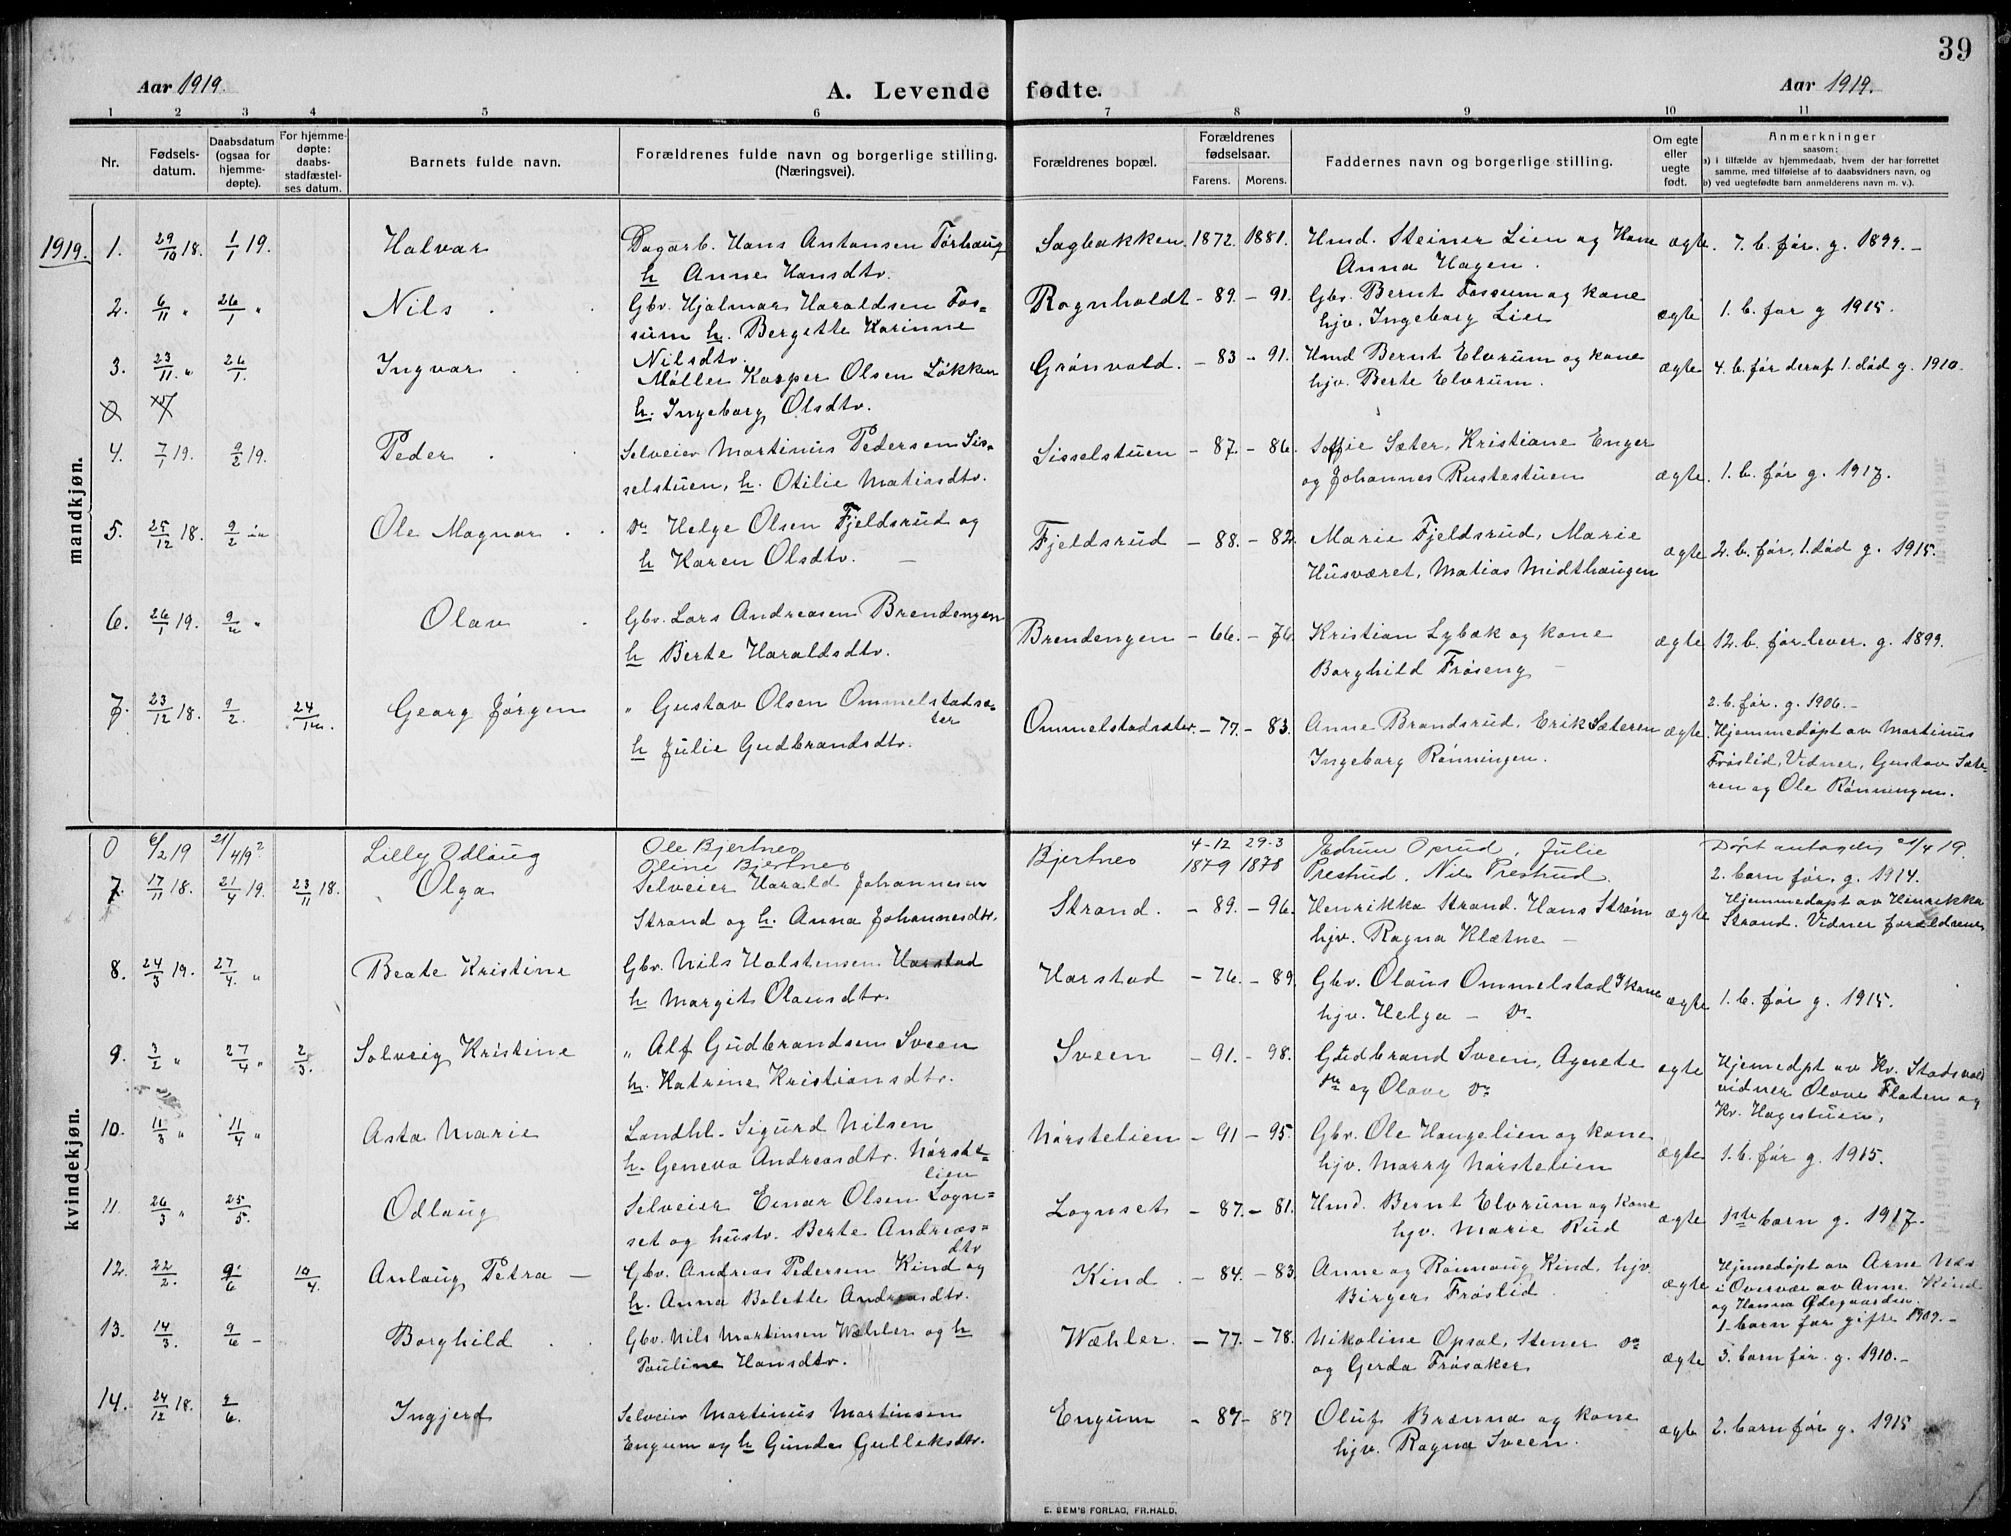 39
Aar 1919.
A. Levende fødte.
Aar 1919.
1 2 3 4 5 6 7 8 9 10 11
Nr.
Fødsels-
datum.
Daabsdatum
(ogsaa for
hjemme-
døpte).
For hjemme-
døpte:
daabs-
stadfæstel-
ses datum.
Barnets fulde navn.
Forældrenes fulde navn og borgerlige stilling.
(Næringsvei).
Forældrenes bopæl.
Forældrenes
fødselsaar.
Farens. Morens.
Faddernes navn og borgerlige stilling.
Om egte
eller
uegte
født.
Anmerkninger
saasom:
a) i tilfælde av hjemmedaab, hvem der har forrettet
samme, med tilføielse af to daabsvidners navn, og
b) ved uegtefødte barn anmelderens navn m. v.).
mandkjøn.
1919. 1. 29/10 18. 1/1 19. Halvar Dagarb. Hans Antonsen Tørhaug Sagbakken 1872. 1881. Hmd. Steiner Lien og Kone ægte. 7. b. før. g. 1899. -
h Anne Hansdtr. Anna Hagen.
2. 6/11 " 26/1 " Nils Gbr. Hjalmar Haraldsen Fos- Rognholdt - 89. - 91. Gbr. Bernt Fossum og kone ægte 1. b. før g 1915.
sum h. Bergitte Karinne hjv. Ingeborg Lier
Nilsdtr.
3. 23/11. " 26/1. Ingvar Møller Kasper Olsen Løkken Grønvold. - 83 - 91. Hmd Bernt Elvrum og kone ægte 4. b. før deraf 1. død g. 1910.
h. Ingeborg Olsdtr. hjv. Berte Elvrum.
4. 7/1 19. 9/2 19. Peder Selveier Martinus Pedersen Sis- Sisselstuen - 87. - 86. Soffie Sæter, Kristiane Enger ægte. 1. b. før g. 1917.
selstuen, h. Otilie Matiasdtr. og Johannes Rustestuen
5. 25/12 18. 9/2 Ole Magnar Dr Helge Olsen Fjeldsrud og Fjeldsrud - 88. - 82. Marie Fjeldsrud, Marie ægte 2. b. før, 1. død g. 1915.
h Karen Olsdtr. - Husværet, Matias Midthaugen
6. 26/1 19. 9/2 " Olav Gbr. Lars Andreasen Brendengen Brendengen - 66. - 76. Kristian Lybæk og kone ægte 12. b. før lever. g. 1899.
h Berte Haraldsdtr. Borghild Frøseng -
7. 23/12 18. 9/2. 24/12. Georg Jørgen " Gustav Olsen Ommelstadsæ- Ommelstadsætr. - 77. - 83. Anne Brandsrud. Erik Sæteren ægte. 2. b. før. g. 1906. -
ter Hjemmedøpt av Martinus
h Julie Gudbrandsdtr. Ingeborg Rønningen. Frøslid, Vidner, Gustav Sæte-
ren og Ole Rønningen.
kvindekjøn.
0 6/2 19 21/4 19? Lilly Odlaug Ole Bjertnes Bjertnes 4-12 29-3 Oprud, Julie Døpt antagelig 21/4 19.
Oline Bjertnes 1879 1878 Prestrud. Nils Prestrud. 2. barn før. g. 1914.
7. 17/11 18. 21/4 19. 23/11 18. Olga Selveier Harald Johannesen Strand. - 89. - 96. Henrikka Strand. Hans Strøm ægte Hjemmedøpt av Henrikka
Strand og h. Anna Johannesdtr. hjv. Ragna Klætne - Strand. Vidner forældrene
8. 24/3 19. 27/4. " Beate Kristine Gbr. Nils Halstensen Harstad Harstad - 76. - 89. Gbr. Olaus Ommelstad & kone ægte 1. b. før g. 1915.
h Margit Olausdtr. hjv. Helga - Dr.
9. 3/2 " 27/4 " 2/3. Solveig Kristine " Alf Gudbrandsen Sveen Sveen - 91. - 98. Gudbrand Sveen, Agnete ægte Hjemedøpt av Kv. Stadsvold
h. Katrine Kristiansdtr. Dr og Olave Dr vidner Olave Flaten og
Kr. Hagestuen,
10. 11/3 " 11/4 " Asta Marie Landhl. Sigurd Nilsen Nørstelien - 91 - 95. Gbr. Ole Haugelien og kone ægte 1. b. før g. 1915.
h. Geneva Andreasdtr. Nørste- hjv. Marry Nørstelien
lien
11. 26/3 " 25/5. Odlaug Selveier Einar Olsen Logn- Lognset - 87. - 81. Hmd. Bernt Elvrum og kone ægte 1ste barn g. 1917.
set og hustr. Berte Andreas- hjv. Marie Rud
dtr
12. 22/2. 9/6 10/4. Anlaug Petra - Gbr. Andreas Pedersen Kind og Kind. - 84. - 83. Anne og Rønnaug Kind. hjv. ægte Hjemedøpt av Arne Næs
h. Anna Bolette Andreasdtr. Birger Frøslid. i Overvær av Anne Kind
og Hanna Ødegaarden.
1 barn før gifte 1909. -
13. 14/3. 9/6 - Borghild Gbr. Nils Martinsen Wæhler og h Wæhler. - 77. - 78. Nikoline Opsal, Stener Dr ægte 3. barn før. g. 1910. -
Pauline Hansdtr. og Gerda Frøsaker
14. 24/12 18. 9/6. Ingjerd Selveier Martinus Martinsen Engum - 87 - 87 Oluf Brænna og kone ægte 2. barn før g. 1915
Engum og h Gunda Gulleksdtr. hjv. Ragna Sveen.
E. SEM'S FORLAG, FR.HALD.